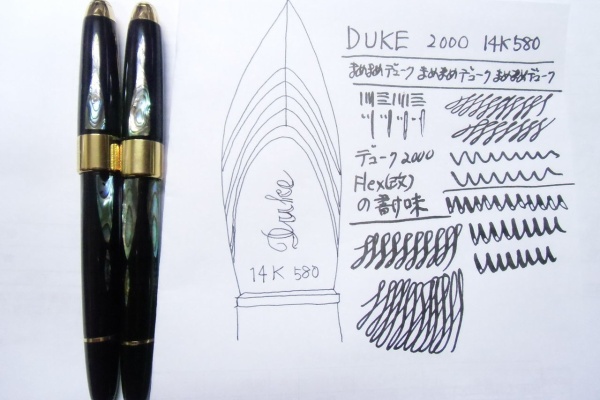 DUKE 2000 14K580
まめまめデューク まめまめデューク まめまめデューク
デューク2000
Flex(改)
の書け味
Duke
14K 580